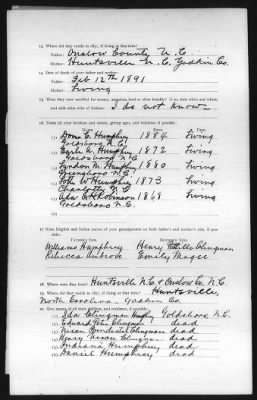 13. Where did they reside in 1851, if living at that time?
Father: Onslow County N.C.
Mother: Huntsville N.C. Yadkin Co.
14. Date of death of your father and mother?
Father: Feb 12th 1891
Mother: Living
15. Were they ever enrolled for money, annuities, land or other benefits? If so, state when and where,
and with what tribe of Indians: I do not know
16. Name all your brothers and sisters, giving ages, and residence if possible:
(1) Dora C. Humphry 1884 Living
Goldsboro N.C.
(2) Earle A. Humphry 1872 Living
Goldsboro N.C.
(3) Lyndon M. Humphry 1880 Living
Greensboro N.C.
(4) John W Humphry 1873 Living
Charlotte N.C.
(5) Ada Robinson 1868 Living
Goldsboro N.C.
17. Give English and Indian names of your grandparents on both father's and mother's side, if pos-
sible:
Williams Humphrey Henry Clingman
Rebecca Ambrose Emily Magee
18. Where were they born? Huntsville N.C. & Onslow Co. N.C.
19. Where did they reside in 1851, if living at that time? Huntsville,
North Carolina Yadkin Co.
20. Give names of all their children, and residence, if possible:
(1) Ida Clingman Humphry Goldsboro, N.C.
(2) Edward Clingman dead
(3) Clingman dead
(4) Henry Clingman dead
(5) Indiana Humphrey dead
(6) Daniel Humphrey dead